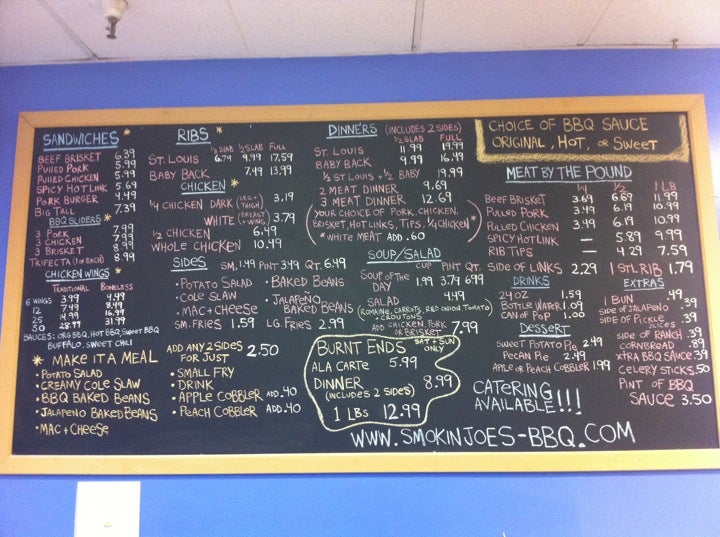 SANDWICHES *
BEEF BRISKET 6.39
PULLED PORK 5.99
PULLED CHICKEN 5.99
SPICY HOT LINK 5.69
PORK BURGER 4.49
BIG TALL 7.39
BBQ SLIDERS *
3 PORK 7.99
3 CHICKEN 7.99
3 BRISKET 8.99
TRIFECTA (1 of EACH) 8.99
CHICKEN WINGS *
TRADITIONAL BONELESS
6 WINGS 3.99 4.49
12 7.49 8.49
25 14.99 16.99
50 28.99 31.99
SAUCES: ORG BBQ, HOT BBQ, SWEET BBQ
BUFFALO, SWEET CHILI
* MAKE IT A MEAL
• POTATO SALAD
• CREAMY COLE SLAW
• BBQ BAKED BEANS
• JALAPENO BAKED BEANS
• MAC + CHEESE
ADD ANY 2 SIDES
FOR JUST 2.50
• SMALL FRY
• DRINK
• APPLE COBBLER ADD .40
• PEACH COBBLER ADD .40
RIBS *
1/3 SLAB 1/2 SLAB FULL
ST. LOUIS 6.79 9.99 17.59
BABY BACK 7.49 13.99
CHICKEN *
1/4 CHICKEN DARK (LEG + THIGH) 3.19
WHITE (BREAST + WING) 3.79
1/2 CHICKEN 6.49
WHOLE CHICKEN 10.49
SIDES SM. 1.49 PINT 3.49 QT. 6.49
• POTATO SALAD • BAKED BEANS
• COLE SLAW • JALAPEÑO
• MAC + CHEESE BAKED BEANS
SM. FRIES 1.59 LG. FRIES 2.99
DINNERS (INCLUDES 2 SIDES)
1/2 SLAB FULL
ST. LOUIS 11.99 19.99
BABY BACK 9.99 16.49
1/2 ST LOUIS + 1/2 BABY 19.99
2 MEAT DINNER 9.69
3 MEAT DINNER 12.69
(YOUR CHOICE OF PORK, CHICKEN,
BRISKET, HOT LINKS, TIPS, 1/4 CHICKEN*)
* WHITE MEAT ADD .60
SOUP/SALAD
CUP PINT QT.
SOUP OF THE DAY 1.99 3.79 6.99
SALAD 4.49
(ROMAINE, CARROTS, RED ONION, TOMATO, + CROUTONS)
ADD CHICKEN, PORK OR BRISKET 7.99
BURNT ENDS SAT + SUN ONLY
ALA CARTE 5.99
DINNER 8.99
(INCLUDES 2 SIDES)
1 LBS 12.99
CHOICE OF BBQ SAUCE
ORIGINAL, HOT, OR SWEET
MEAT BY THE POUND
1/4 1/2 1 LB
BEEF BRISKET 3.69 6.69 11.99
PULLED PORK 3.49 6.19 10.99
PULLED CHICKEN 3.49 6.19 10.99
SPICY HOT LINK — 5.89 9.99
RIB TIPS — 4.29 7.59
SIDE OF LINKS 2.29 1 ST L RIB 1.79
DRINKS
24 OZ 1.59
BOTTLE WATER 1.09
CAN of POP 1.00
DESSERT
SWEET POTATO PIE 2.49
PECAN PIE 2.49
APPLE OR PEACH COBBLER 1.99
CATERING
AVAILABLE!!!
EXTRAS
1 BUN .49
SIDE OF JALAPENO .39
SIDE OF PICKLE SLICES .39
SIDE OF RANCH .39
CORNBREAD .89
XTRA BBQ SAUCE .39
CELERY STICKS .50
PINT OF BBQ
SAUCE 3.50
WWW.SMOKINJOES-BBQ.COM